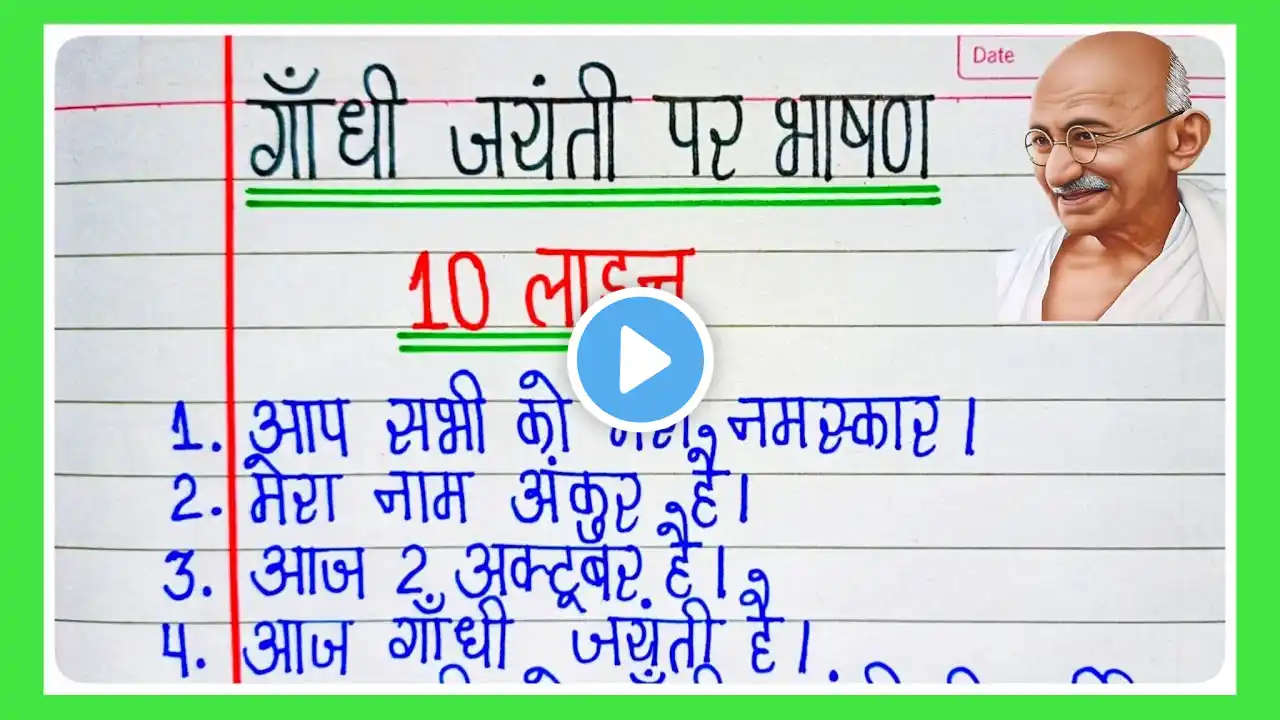 Date
गाँधी जयंती पर भाषण
10 लाइन
1. आप सभी को मेरा नमस्कार।
2. मेरा नाम अंकुर है।
3. आज 2 अक्टूबर है।
4. आज गाँधी जयंती है।